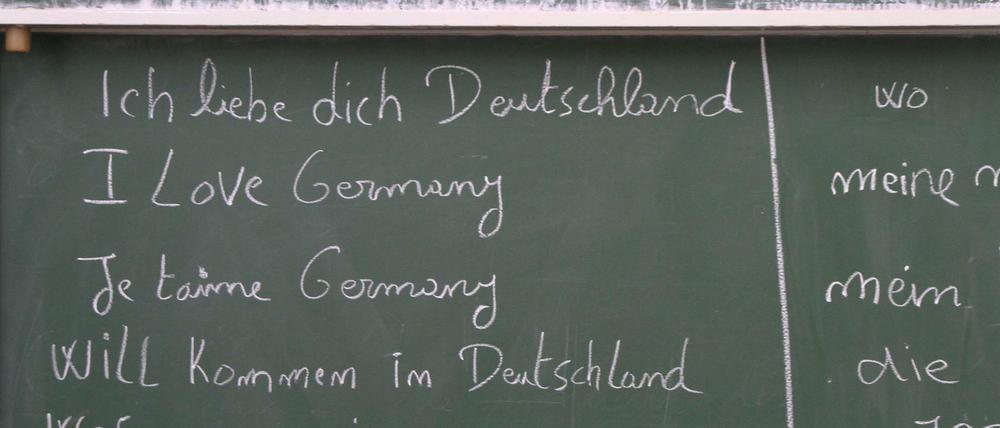 Ich liebe dich Deutschland
I Love Germany
Je taime Germany
Will Kommen in Deutschland
wo
meine
mein
die